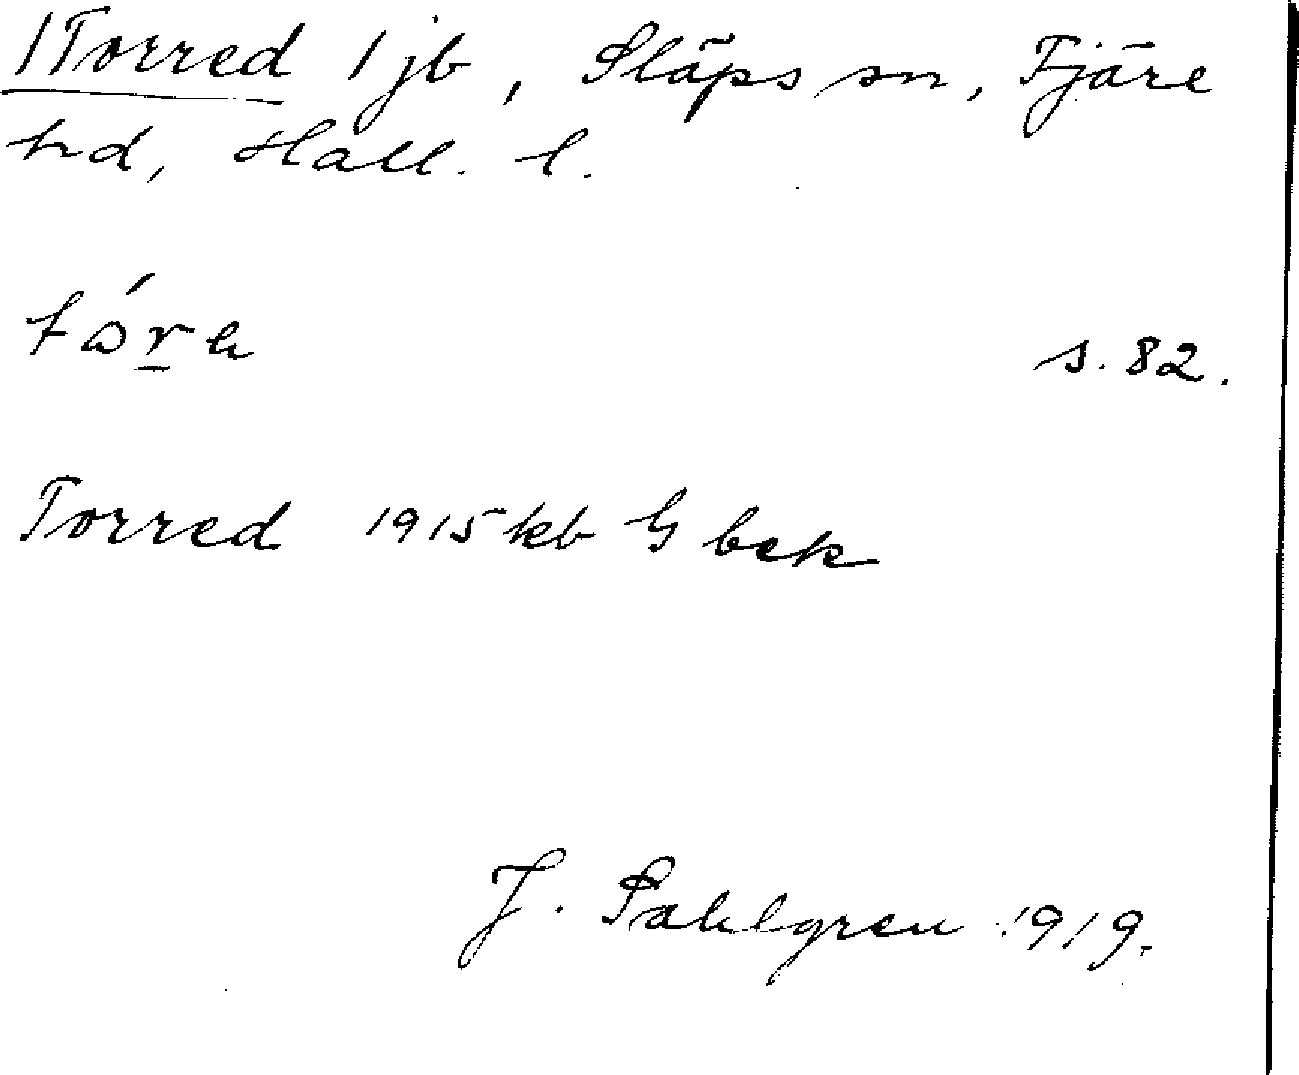 /Torred / jb, Släps sn, Fjäre
hd, Hall. l.
s. 82.
Torred 1915 kb G bek
J. Sahlgren 1919.